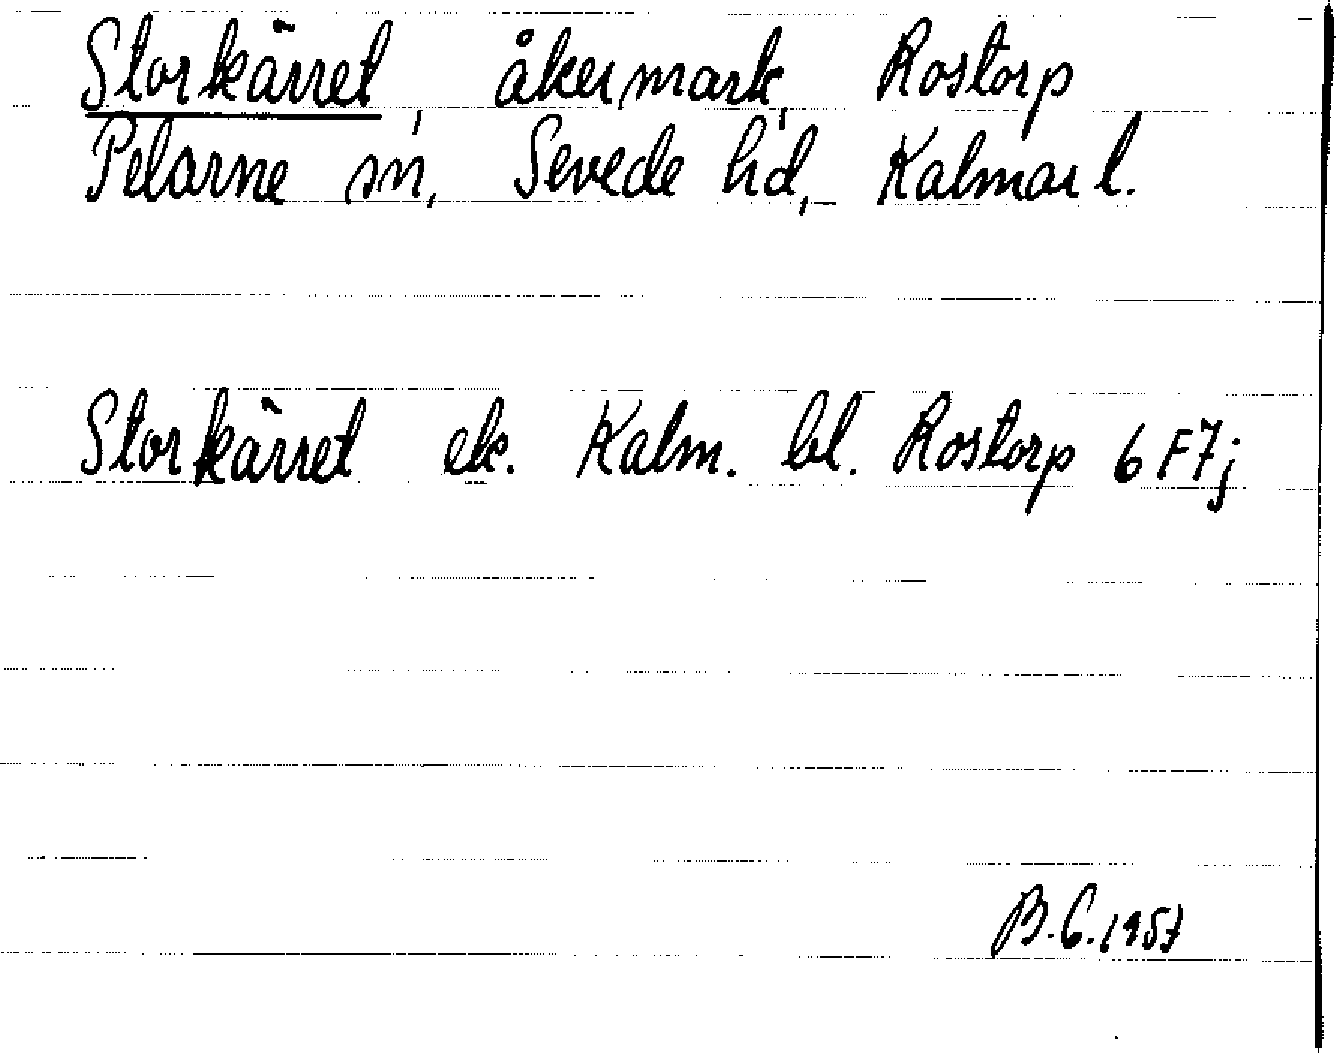 Storkärret, åkermark, Rostorp
Pelarne sn, Sevede hd, Kalmar l.
Storkärret ek. Kalm. bl. Rostorp 6 F7j
B.G. 1957